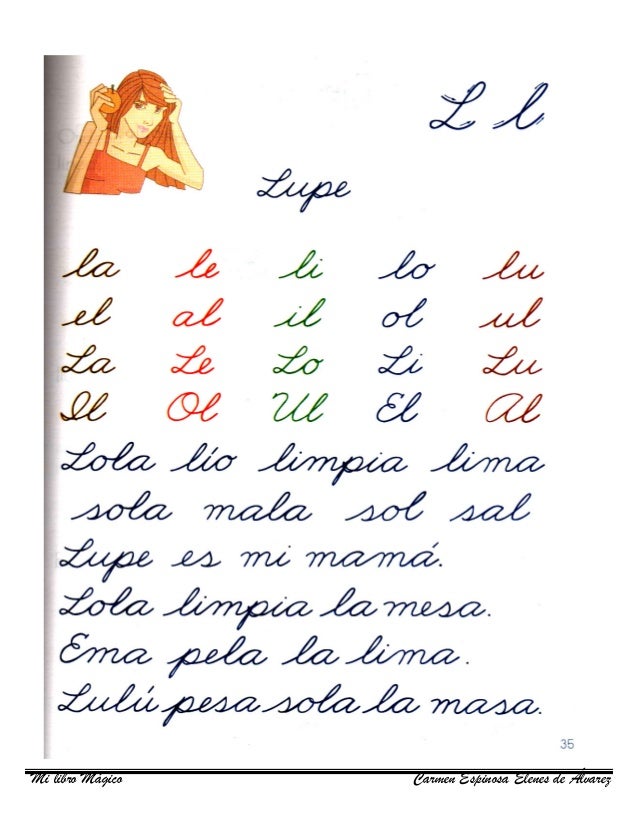 L l
Lupe
la le li lo lu
el al il ol ul
La Le Lo Li Lu
Il Ol Ul El Al
Lola lío limpia lima
sola mala sol sal
Lupe es mi mamá.
Lola limpia la mesa.
Ema pela la lima.
Lulú pesa sola la masa.
35
Mi libro Mágico Carmen Espinosa Elenes de Álvarez